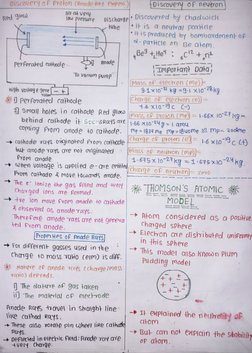 Discovery of Proton (Anode Ray Experi
Gas at very
low pressure
Discharge
tube
Red glow
Perforated cathode
To vacuum pump
High voltage gene
① Perforated cathode
② Small holes in cathode Red glow
behind cathode it sec - Rays are
coming from anode to cathode.
→ cathode rays originated from cathode
but anode rays are not originated
from anode.
→ When voltage is applied e- are emitted
from cathode & move towards anode.
→ The e- ionize the gas filled and +vely
charged ions are formed.
→ +ve ion move from anode to cathode
& observed as anode rays.
Therefore anode rays are not generated
from anode.
Properties of Anode Rays
→ For different gasses used in the
charge to mass ratio (e/m) is diff.
Nature of anode rays (charge/mass
ratio) depends.
i] The nature of gas taken
ii] The material of electrode
Anode Rays travel in straight line
like cathod Rays.
→ These also rotate pin wheel like cathode
Rays.
→ Deflected in electric field: Anode ray are
+vely charge.
Discovery of neutron
→ Discovered by chadwick
→ It is a neutral particle
→ It is produced by bombardement of
α- particle on Be atom.
Important Data
Mass of electron (me)
9.1×10⁻³¹ kg = 9.1×10⁻²⁸ g
charge of electron (e)
1.6×10⁻¹⁹ C (-)
Mass of proton (mp)
charge of proton
1.6×10⁻¹⁹ C (+)
Mass of neutron (mn)
1.675×10⁻²⁷ kg = 1.675×10⁻²⁴ kg
charge of neutron = zero
THOMSON'S ATOMIC
MODEL
→ Atom considered as a positive
charged sphere
→ Electron are distributed uniformly
in this sphere
This model also known Plum
Pudding model
→ It explained the neutrality of
atom
→ But can not explain the stability
of atom